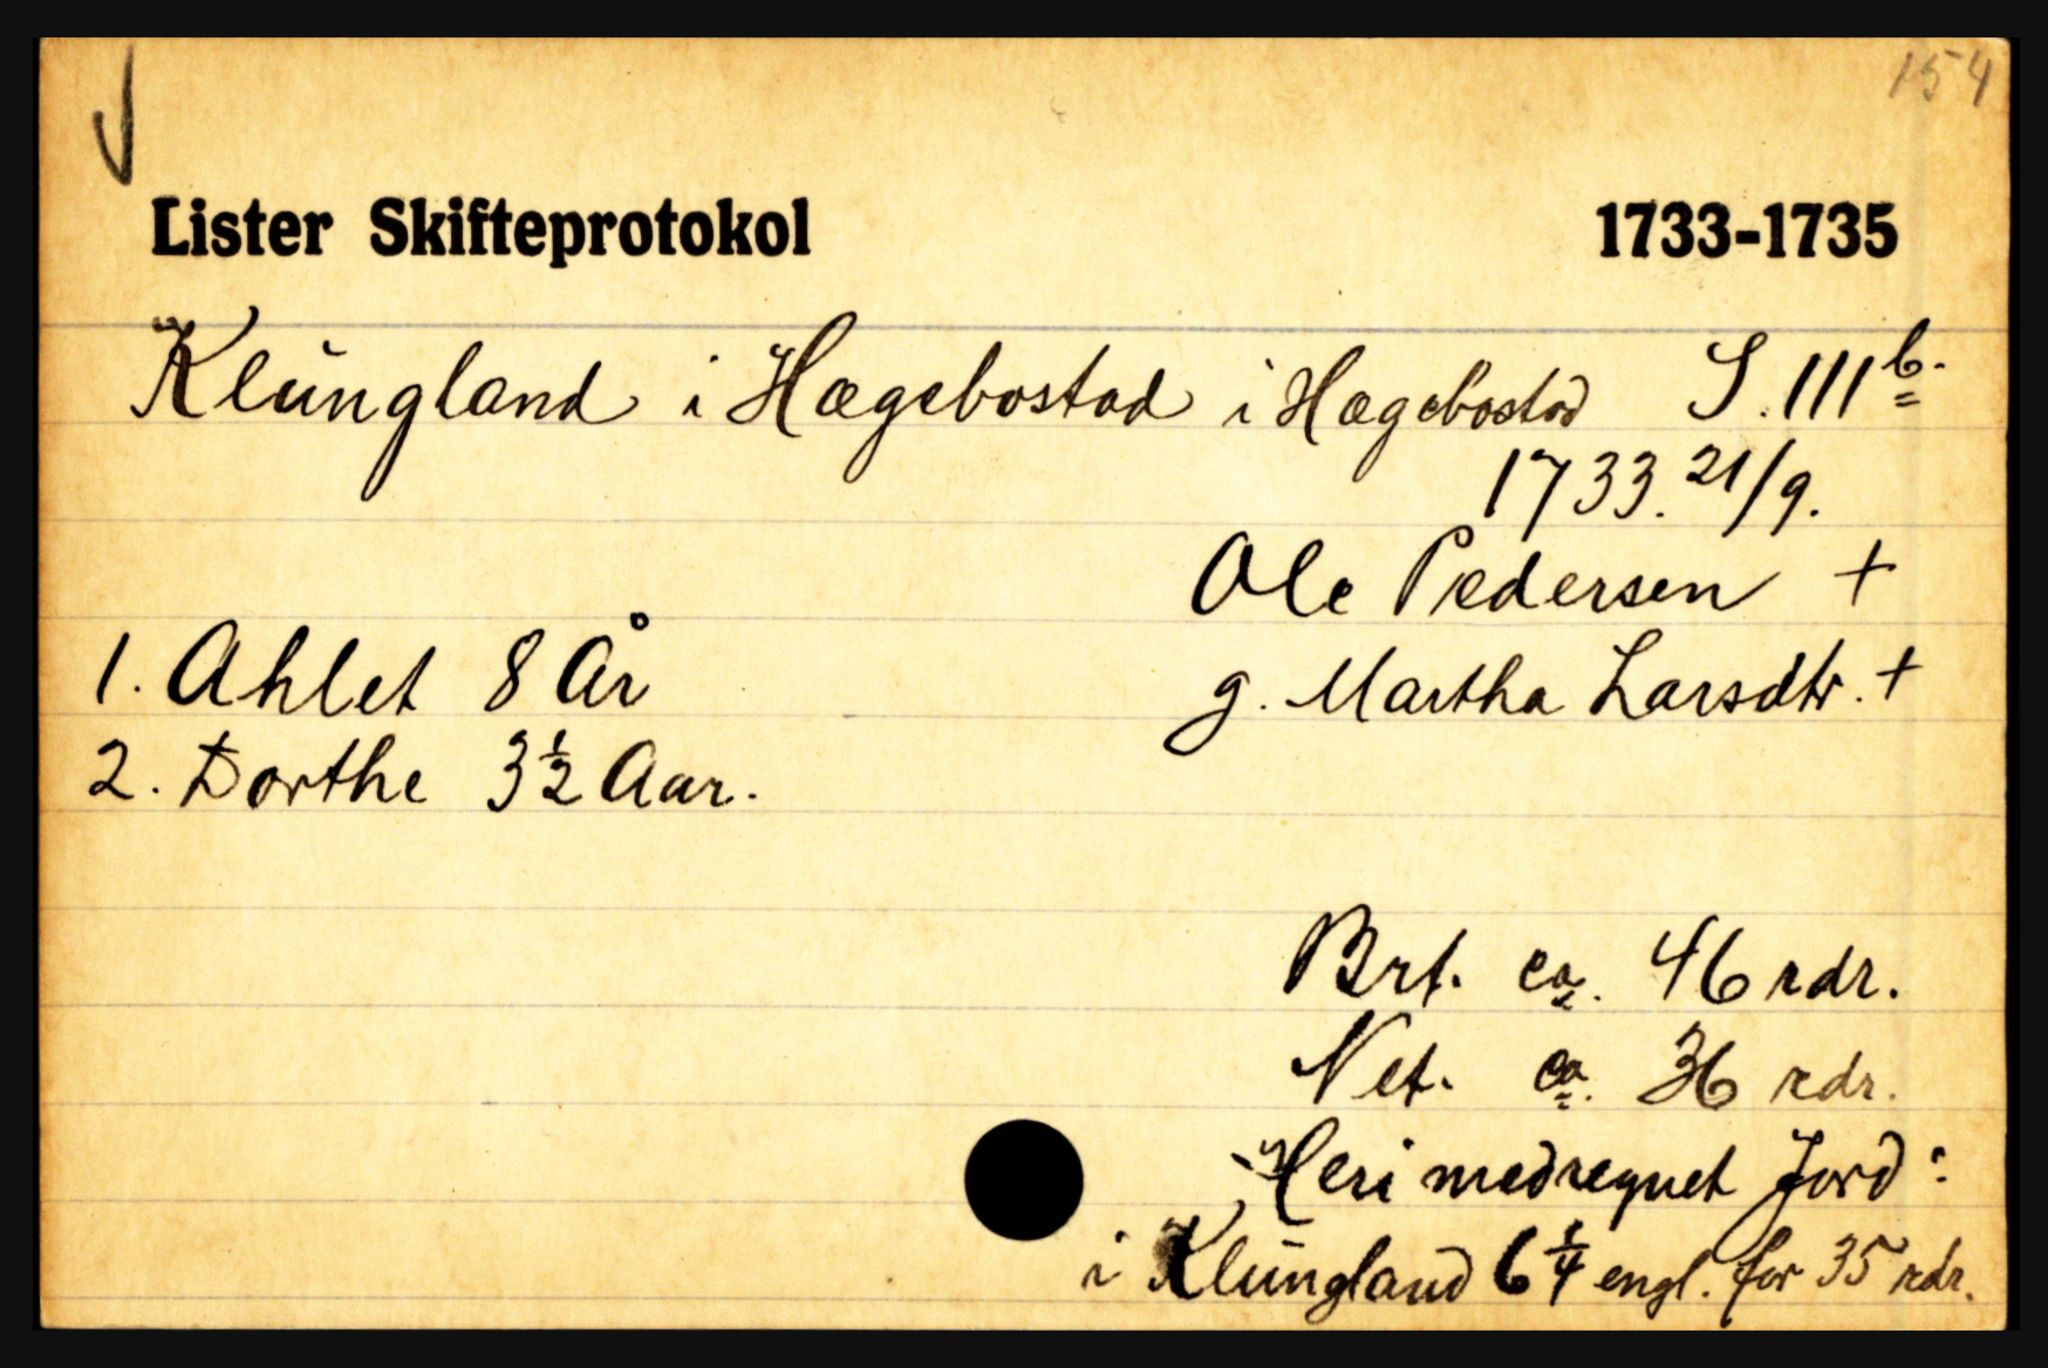 154
Lister Skifteprotokol 1733-1735
Klungland i Hægebostad i Hægebostad S. 111 b.
1733. 21/9.
Ole Pedersen +
1. Ahlet 8 År g. Martha Larsdtr. +
2. Dorthe 3 1/2 Aar.
Brt. ca. 46 rdr.
Net. ca. 36 rdr.
Heri medregnet Jord:
i Klungland 6 1/4 engl. for 35 rdr.